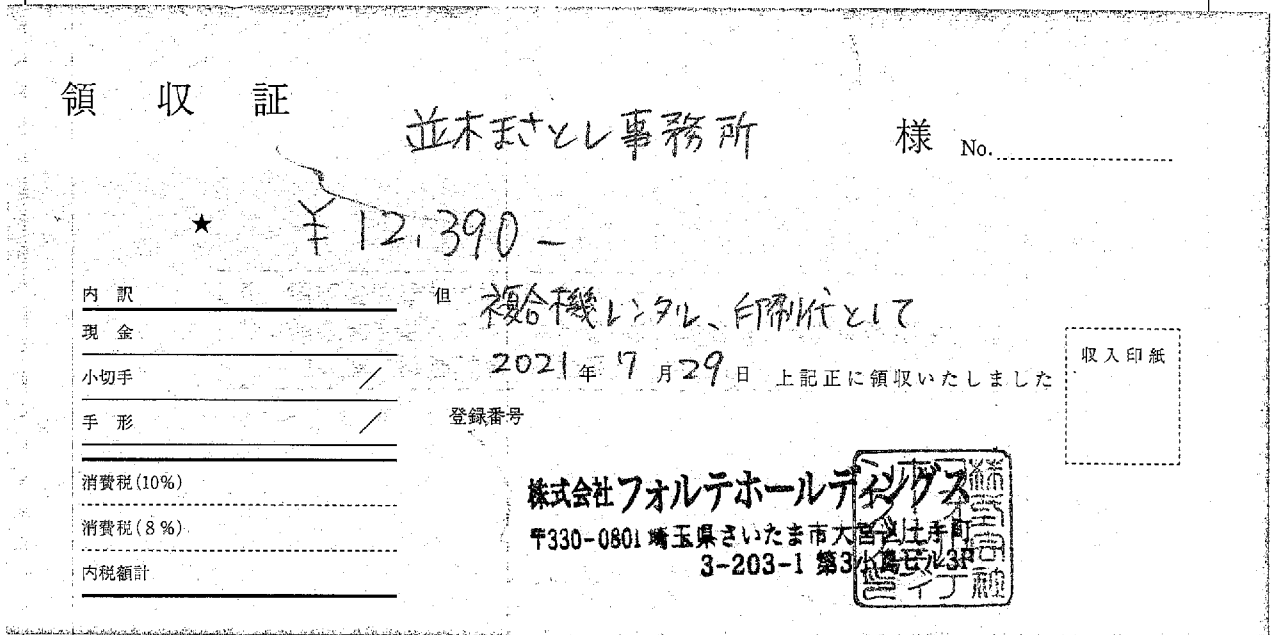 領収証
並木まさとし事務所 様 No.
★ ¥12,390-
内訳
現金
小切手 /
手形 /
消費税(10%)
消費税(8%)
内税額計
但 複合機レンタル、印刷代として
2021年7月29日 上記正に領収いたしました
収入印紙
登録番号
株式会社フォルテホールディングス
〒330-0801 埼玉県さいたま市大宮区土手町
3-203-1 第3小島ビル3F